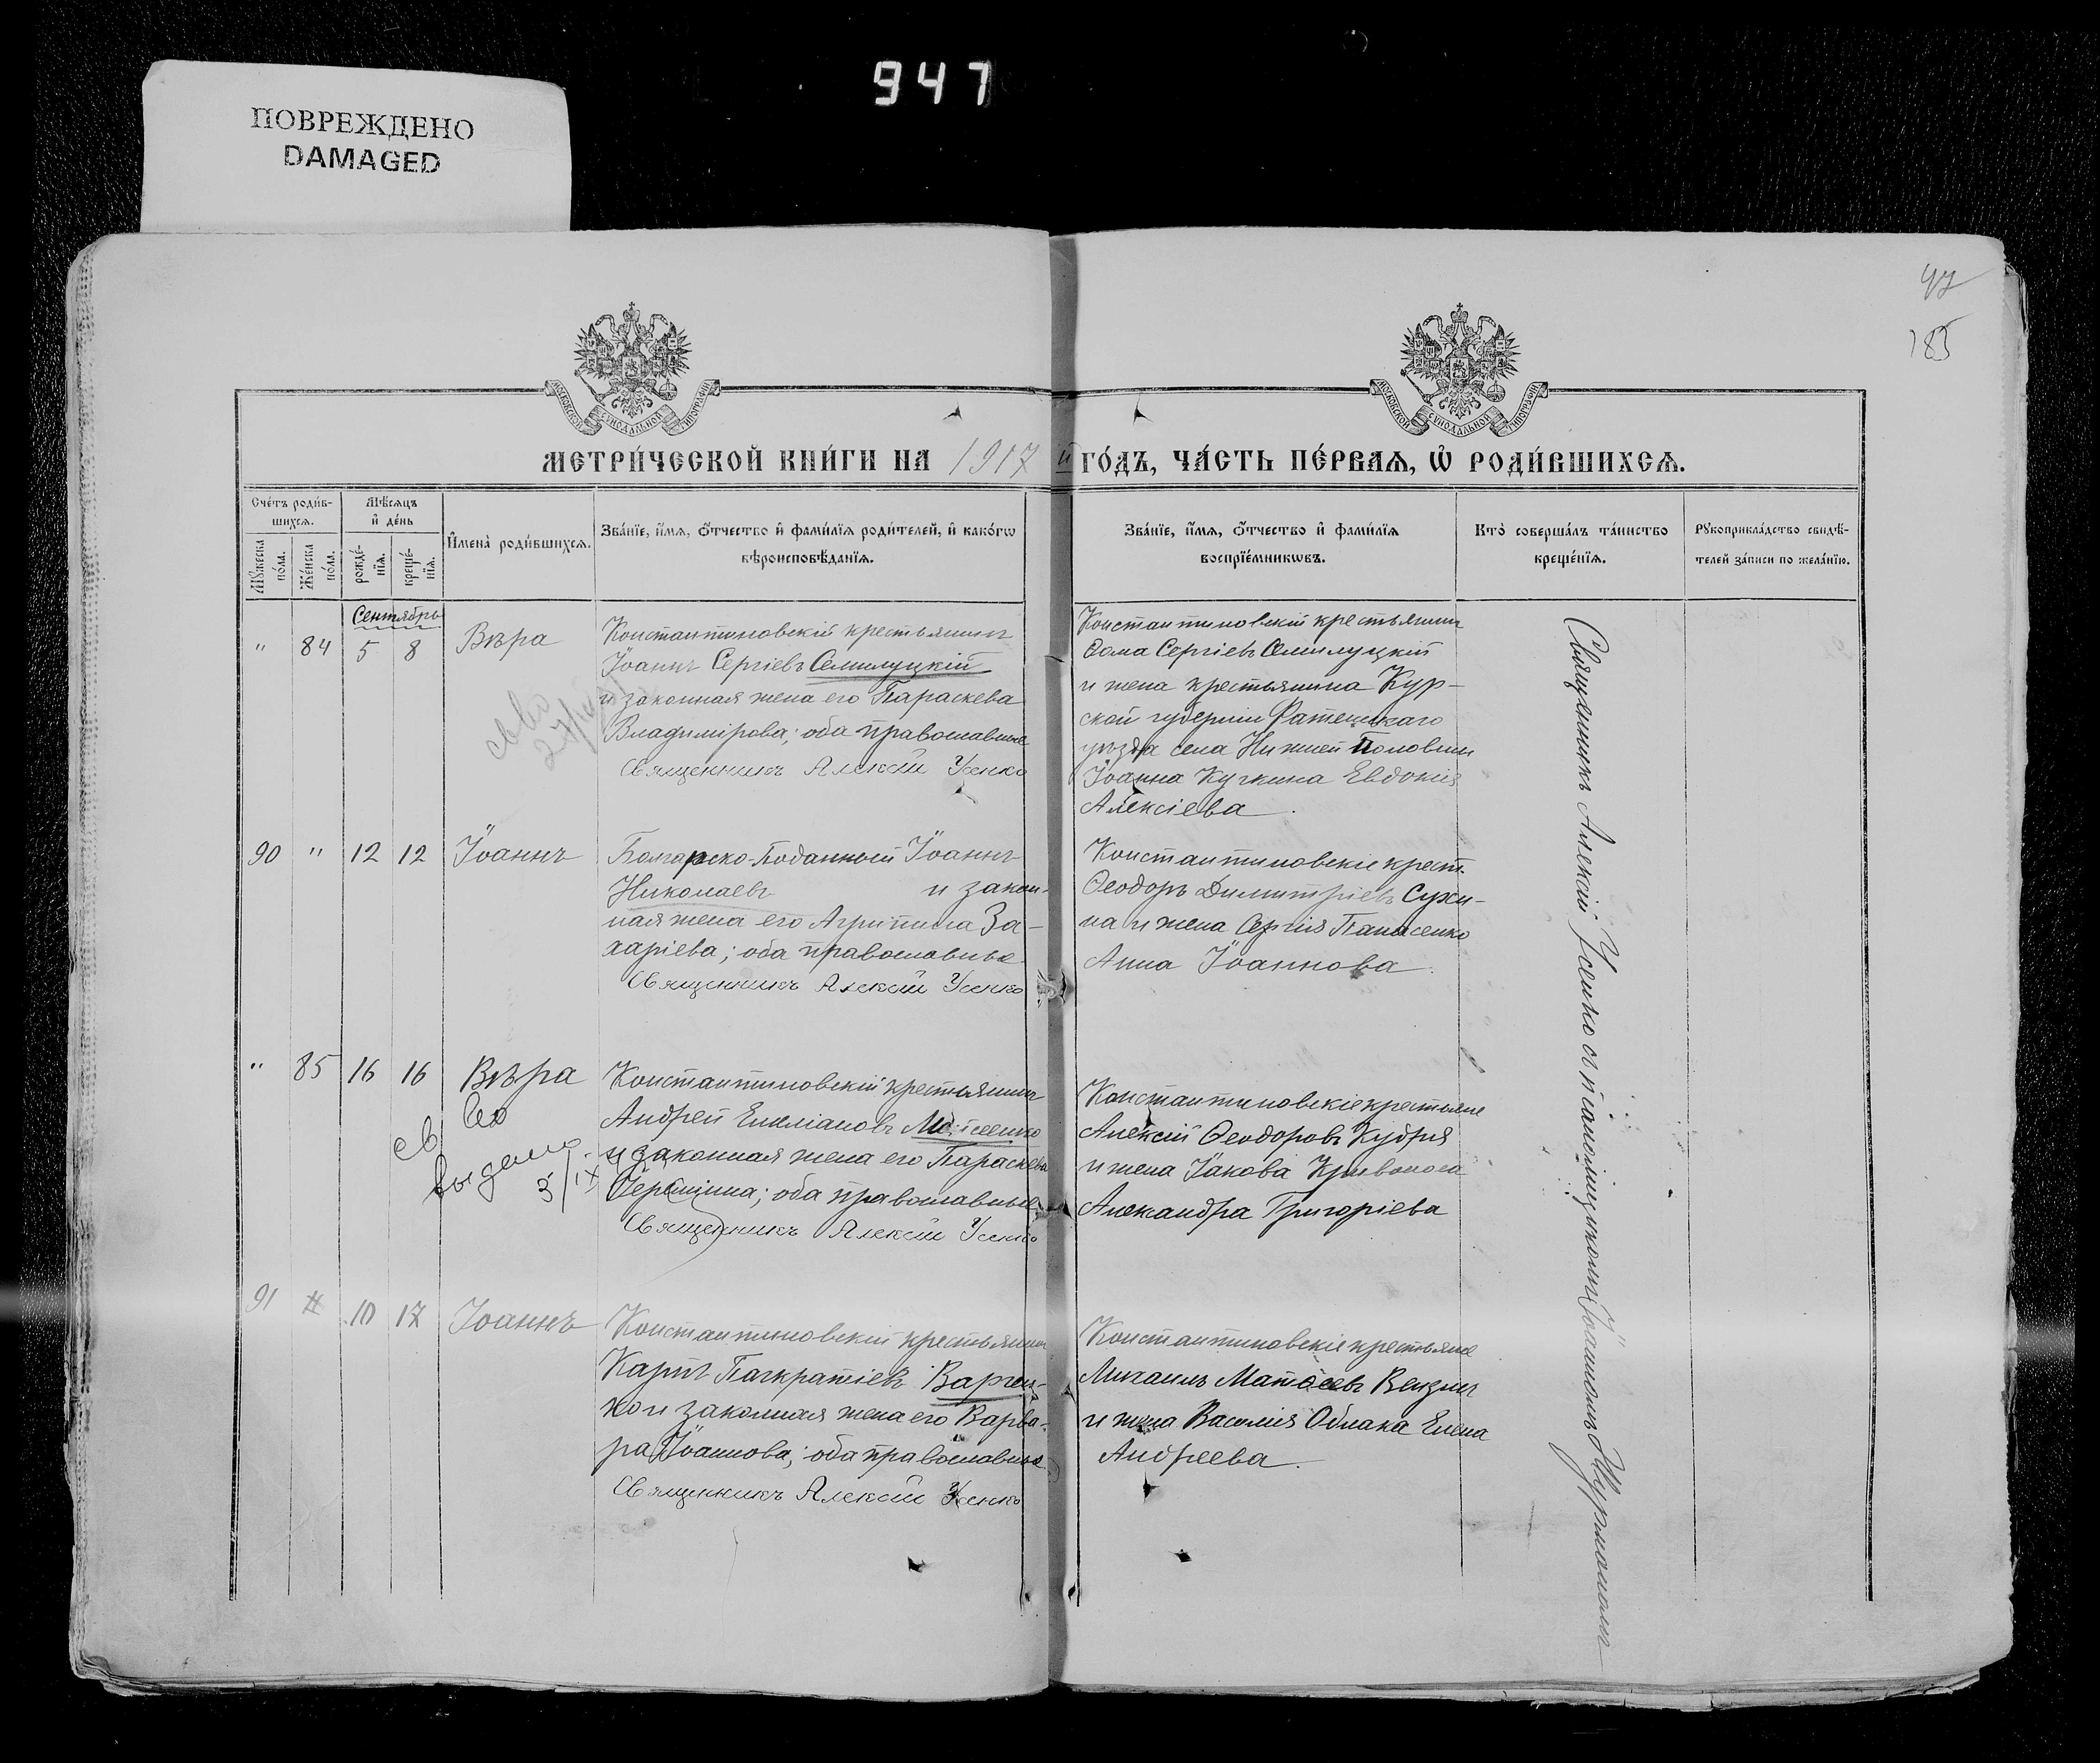 947
ПОВРЕЖДЕНО
DAMAGED
47
185
МОСКОВСКОЙ СѴНОДАЛЬНОЙ ТИПОГРАФІИ
МОСКОВСКОЙ СѴНОДАЛЬНОЙ ТИПОГРАФІИ
МЕТРИ́ЧЕСКОЙ КНИ́ГИ НА 1917 й ГО́ДЪ, ЧА́СТЬ ПЕ́РВАѦ, Ѡ҆ РОДИ́ВШИХСѦ.
Сче́тъ роди́в-
шихсѧ.
Мꙋ́жеска по́ла.
Же́нска по́ла.
Мѣ́сѧцъ
и҆ де́нь
рожде́-
нїѧ.
креще́-
нїѧ.
И҆мена̀ роди́вшихсѧ.
Зва́нїе, и҆́мѧ, ѻ҆́тчество и҆ фами́лїѧ роди́телей, и҆ како́гѡ
вѣроисповѣ́данїѧ.
Зва́нїе, и҆́мѧ, ѻ҆́тчество и҆ фами́лїѧ
воспрїе́мникѡвъ.
Кто̀ соверша́лъ та́инство
креще́нїѧ.
Рꙋкоприкла́дство свидѣ́-
телей за́писи по жела́нїю.
Сентябрь
" 84 5 8 Вѣра
Константиновскій крестьянинъ
Іоаннъ Сергіевъ Семилуцкій
и законная жена его Параскева
Владимірова; оба православные
Священникъ Алексій Усенко
Константиновскій крестьянинъ
Ѳома Сергіевъ Семилуцкій
и жена крестьянина Кур-
ской губерніи Фатежскаго
уѣзда села Нижней
Іоанна Кучкина Евдокія
Алексіева.
90 " 12 12 Іоаннъ
Болгарско-Поданный Іоаннъ
Николаевъ и закон-
ная жена его Агрипина За-
харіева; оба православные.
Священникъ Алексій Усенко
Константиновскіе крест.
Ѳеодоръ Димитріевъ Сухи-
на и жена Сергія Панасенко
Анна Іоаннова.
" 85 16 16 Вѣра
св
выдано
3/IX
Константиновскій крестьянинъ
Андрей Емиліановъ Мойсеенко
и законная жена его Параскева
оба православные.
Священникъ Алексій Усенко
Константиновскіе крестьяне
Алексій Ѳеодоровъ Кудря
и жена Іакова Кривоноса
Александра Григоріева
91 " 10 17 Іоаннъ
Константиновскій крестьянинъ
Карпъ Панкратіевъ Варчен-
ко и законная жена его Варва-
ра Іоаннова; оба православные
Священникъ Алексій Усенко
Константиновскіе крестьяне
Михаилъ Матѳеевъ Вензин
и жена Василія Облака Елена
Андреева.
Священникъ Алексій Усенко съ псаломщикомъ Іоанномъ